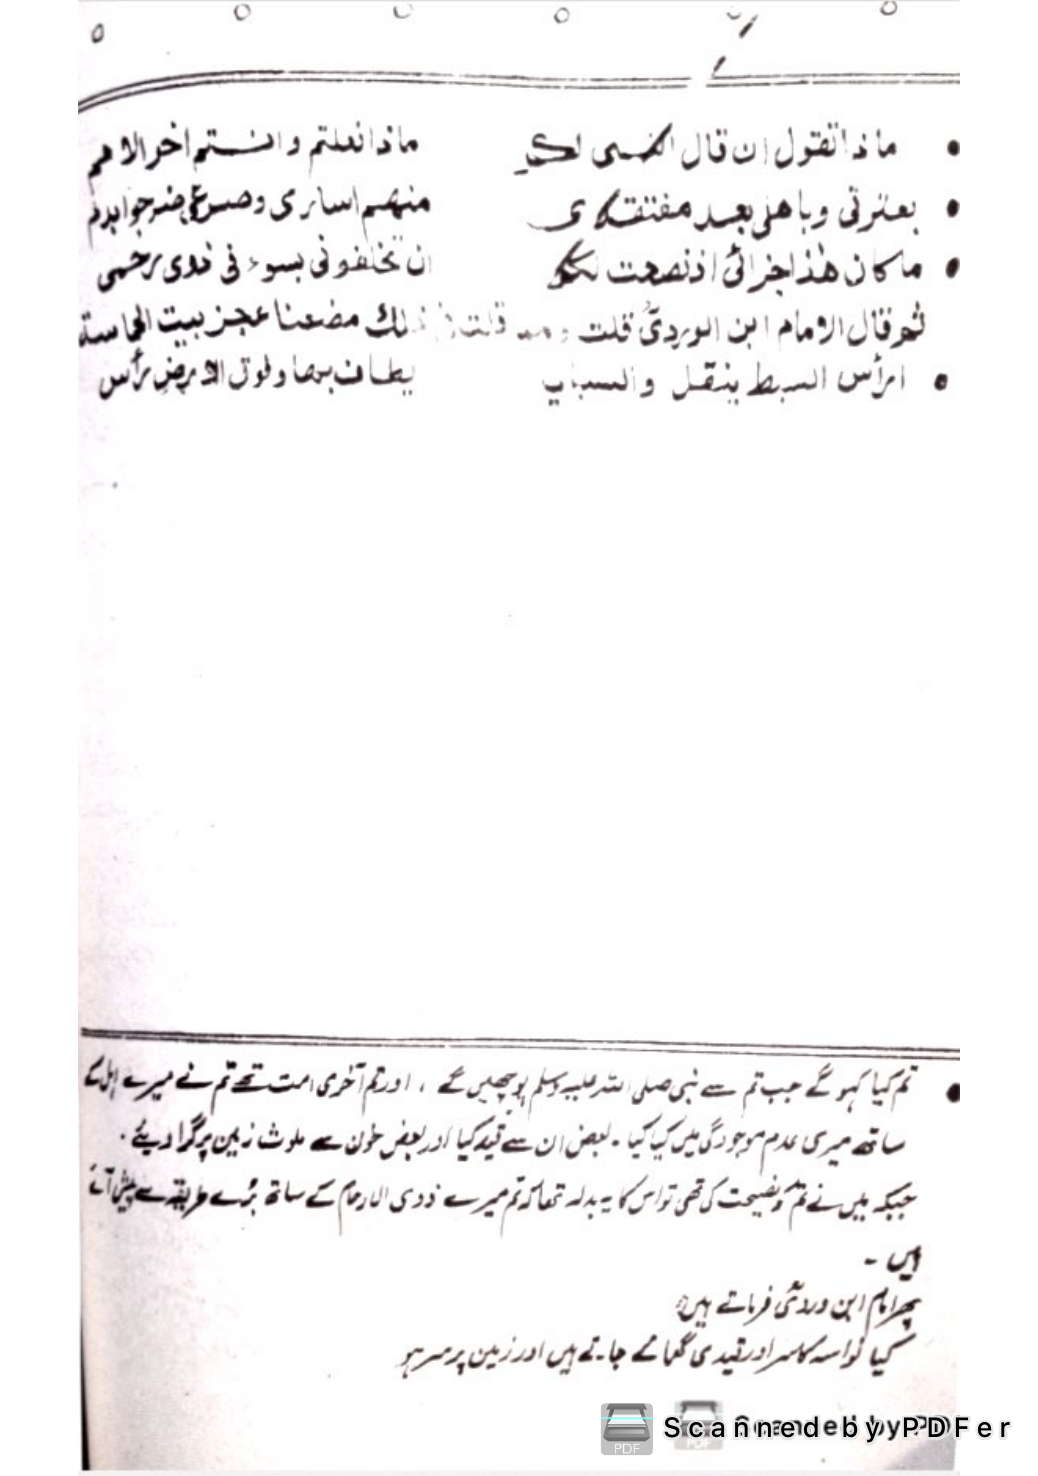 ماذا تقولون ان قال النبي لكم ماذا فعلتم وانتم اخر الامم
بعترتي وباهلي بعد مفتقدي منهم اسارى و ضرجوا بدم
ما كان هذا جزائي اذ نصحت لكم ان تخلفوني بسوء في ذوي رحمي
ثم قال الامام ابن الوردیؒ قلت قلت في ذلك عجز بيت الحماسة
ارأس السبط ينقل والسبايا يطاف بها وفوق الارض رأس
تم کیا کہو گے جب تم سے نبی صلی اللہ علیہ وسلم پوچھیں گے ، اور تم آخری امت تھے تم نے میرے اہل کے
ساتھ میری عدم موجودگی میں کیا کیا ۔ بعض ان سے قید کیا اور بعض خون سے ملوث زمین پر گرا دیئے ۔
جبکہ میں نے تم کو نصیحت کی تھی تو اس کا یہ بدلہ تھا کہ تم میرے ذوی الارحام کے ساتھ بُرے طریقہ سے پیش آئے
ہیں ۔
پھر امام ابن وردیؒ فرماتے ہیں
کیا نواسہ کا سر اور قیدی گھمائے جاتے ہیں اور زمین پر سر ہو
Scanned by PDFer